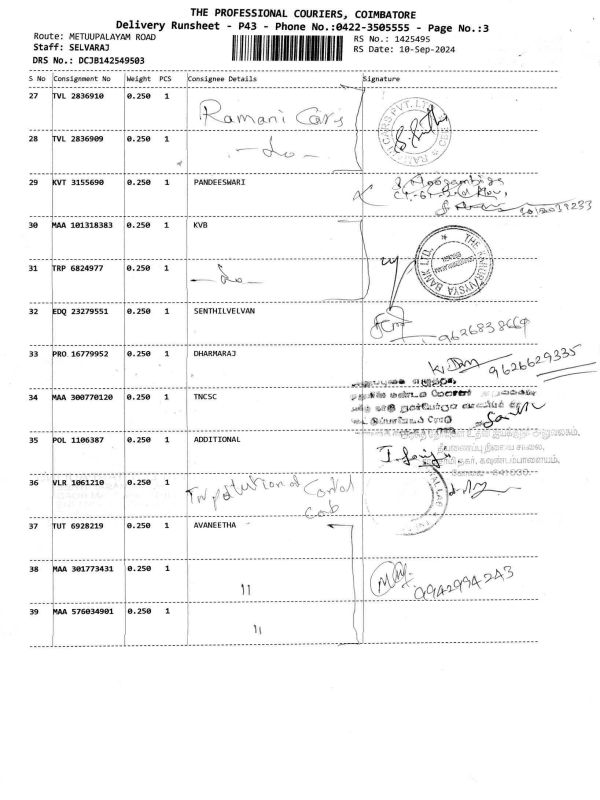 THE PROFESSIONAL COURIERS, COIMBATORE
Delivery Runsheet - P43 - Phone No.:0422-3505555 - Page No.:3
Route: METUUPALAYAM ROAD
RS No.: 1425495
Staff: SELVARAJ
RS Date: 10-Sep-2024
DRS No.: DCJB142549503
S No Consignment No Weight PCS Consignee Details Signature
27 TVL 2836910 0.250 1 Ramani Cars
28 TVL 2836909 0.250 1 -do-
29 KVT 3155690 0.250 1 PANDEESWARI
30 MAA 101318383 0.250 1 KVB
31 TRP 6824977 0.250 1 -do-
THE KARUR VYSYA BANK LTD.
32 EDQ 23279551 0.250 1 SENTHILVELVAN
9626838669
33 PRO 16779952 0.250 1 DHARMARAJ
9626629335
34 MAA 300770120 0.250 1 TNCSC
35 POL 1106387 0.250 1 ADDITIONAL
தீயணைப்பு நிலைய சாலை,
கவுண்டம்பாளையம்,
36 VLR 1061210 0.250 1
37 TUT 6928219 0.250 1 AVANEETHA
38 MAA 301773431 0.250 1 11
0942994243
39 MAA 576034901 0.250 1 11